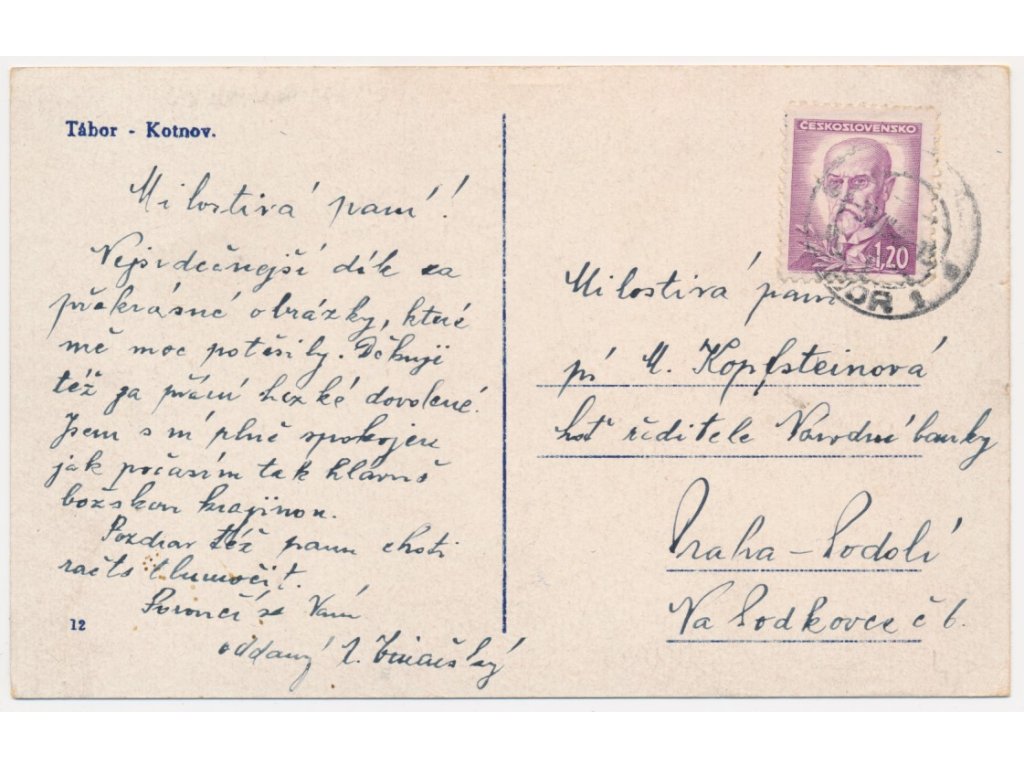 Tábor - Kotnov.
Milostivá paní!
Nejsrdečnější dík za
překrásné obrázky, které
mě moc potěšily. Děkuji
též za přání hezké dovolené.
Jsem s ní plně spokojen
jak počasím tak hlavně
božskou krajinou.
Pozdrav též panu choti
račte tlumočit.
Poroučí se Vám
oddaný
12
ČESKOSLOVENSKO
1,20
BOR 1
Milostivá paní
pí M. Kopfsteinová
choť ředitele Národní banky
Praha - Podolí
Na Podkovce č 6.